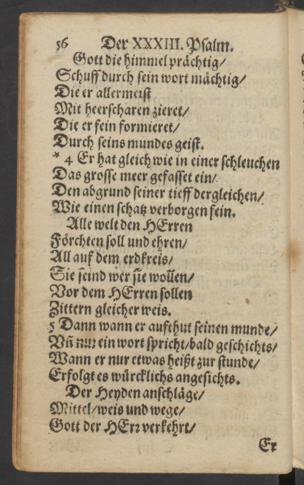 56 Der XXXIII. Psalm.
Gott die himmel prächtig/
Schuff durch sein wort mächtig/
Die er allermeist
Mit heerscharen zieret/
Die er fein formieret/
Durch seins mundes geist.
* 4 Er hat gleich wie in einer schleuchen
Das grosse meer gefasset ein/
Den abgrund seiner tieff dergleichen/
Wie einen schatz verborgen fein.
Alle welt den HErren
Förchten soll und ehren/
All auf dem erdkreis/
Sie seind wer sie wollen/
Vor dem HErren sollen
Zittern gleicher weis.
5 Dann wann er aufthut seinen munde/
Vñ nur ein wort spricht/bald geschichts/
Wann er nur etwas heißt zur stunde/
Erfolgt es würcklichs angesichts.
Der Heyden anschläge/
Mittel/weis und wege/
Gott der HErr verkehrt/
Er